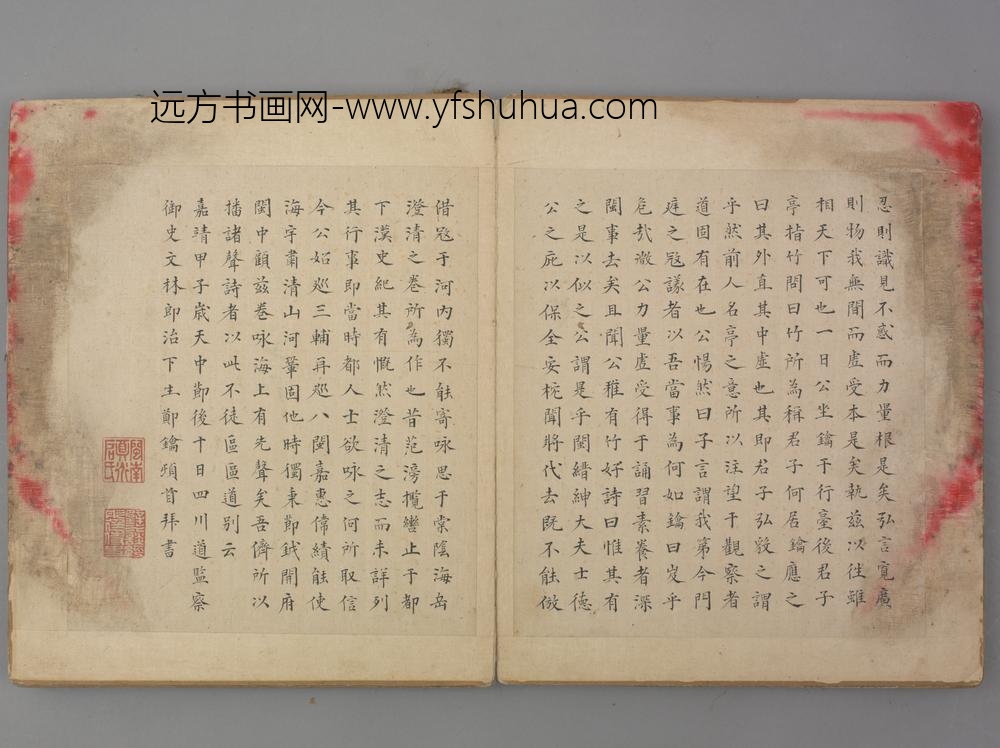 远方书画网-www.yfshuhua.com
忍則識見不惑而力量根是矣弘言寬廣
則物我無間而虛受本是矣執茲以徃雖
相天下可也一日公坐鑰于行臺後君子
亭指竹問曰竹所為稱君子何居鑰應之
曰其外直其中虛也其即君子弘毅之謂
乎然前人名亭之意所以注望于觀察者
道固有在也公惕然曰子言謂我第今門
庭之冦議者以吾當事為何如鑰曰岌乎
危哉微公力量虛受得于誦習素養者深
閩事去矣且聞公雅有竹好詩曰惟其有
之是以似之公謂是乎閩縉紳大夫士德
公之庇以保全妥枕聞將代去既不能倣
借冦于河內獨不能寄咏思于棠陰海岳
澄清之卷所為作也昔范滂攬轡止于都
下漢史紀其有慨然澄清之志而未詳列
其行事即當時都人士欲咏之何所取信
今公始廵三輔再廵八閩嘉惠偉績能使
海宇肅清山河鞏固他時獨秉節鉞開府
閩中顧茲卷咏海上有先聲矣吾儕所以
播諸聲詩者以此不徒區區道別云
嘉靖甲子歲天中節後十日四川道監察
御史文林郎治下生鄭鑰頓首拜書